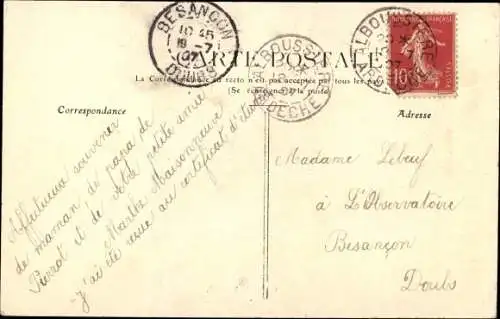 BESANÇON
10 45
19 - 7
07
DOUBS
ALBOUSSIÈRE
ARDÈCHE
10
POSTES
CARTE POSTALE
La Correspondance au recto n'est pas acceptée par tous les
(Se renseigner à la poste)
Correspondance
Adresse
Affectueux souvenir
de maman de papa de
Pierrot et de votre petite amie
Marthe Maisonneuve
J'ai été reçue au certificat d'études
Madame Lebeuf
à L'Observatoire
Besançon
Doubs